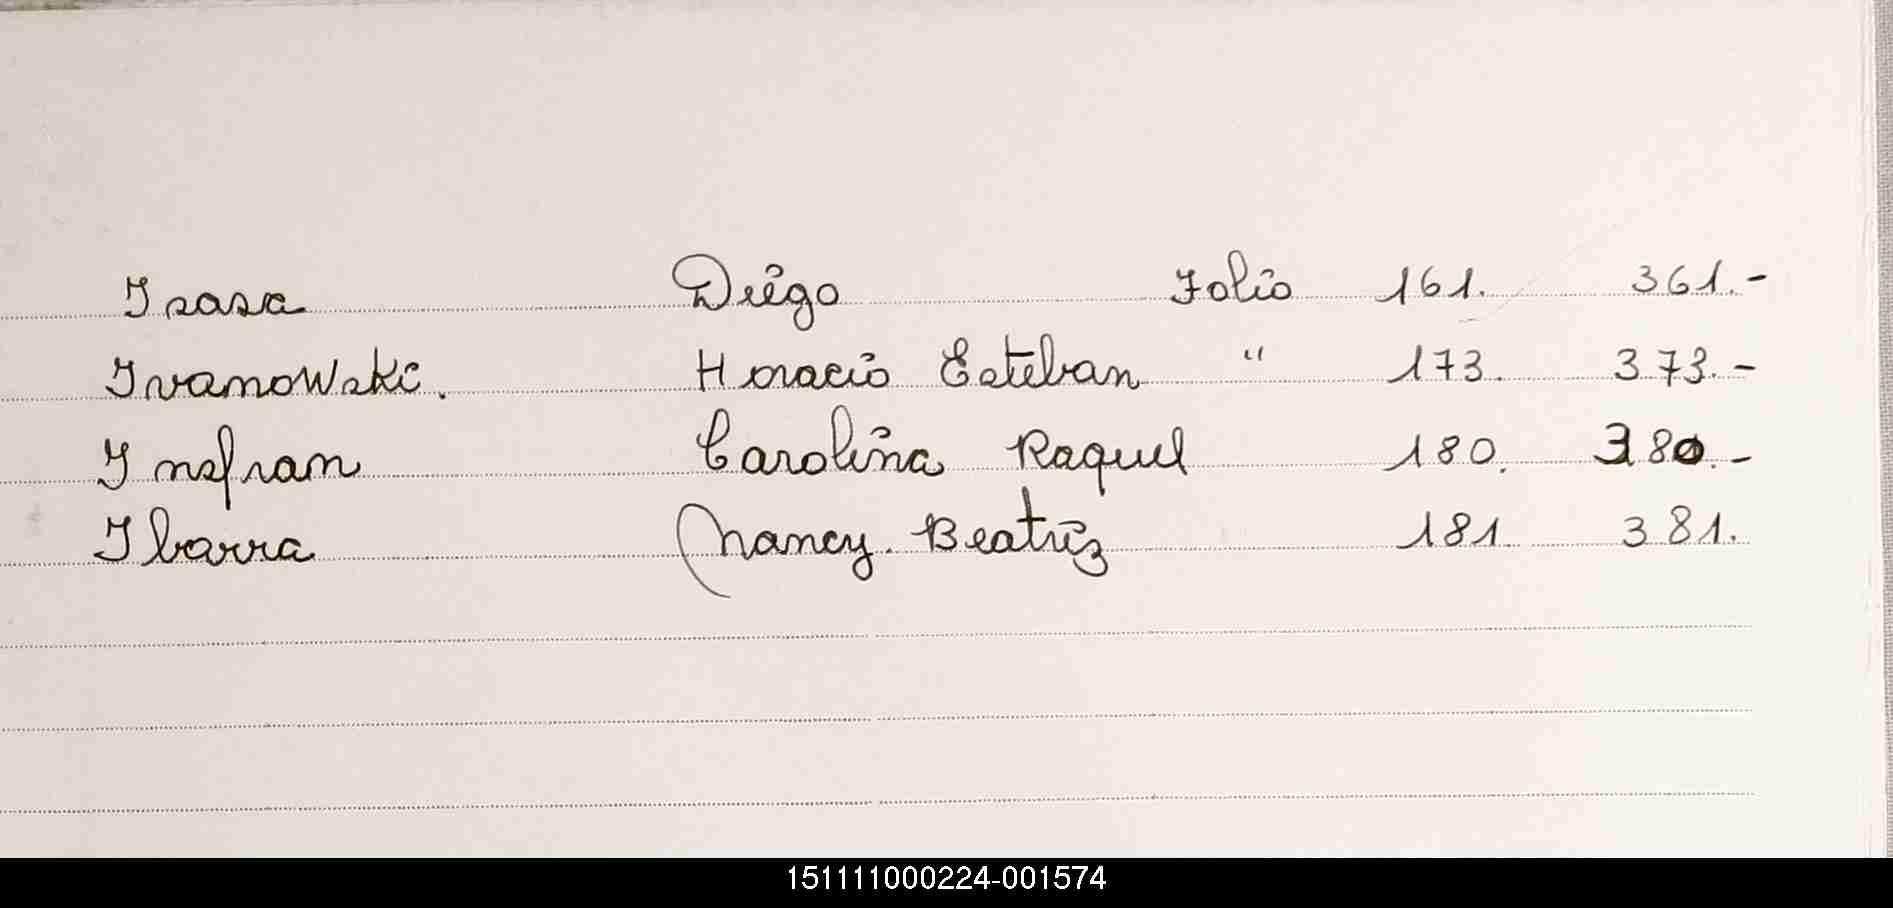 Isasa Diego Folio 161. 361.-
Ivanowski. Horacio Esteban " 173. 373.-
Insfran Carolina Raquel 180. 380.-
Ibarra Nancy. Beatriz 181. 381.
151111000224-001574